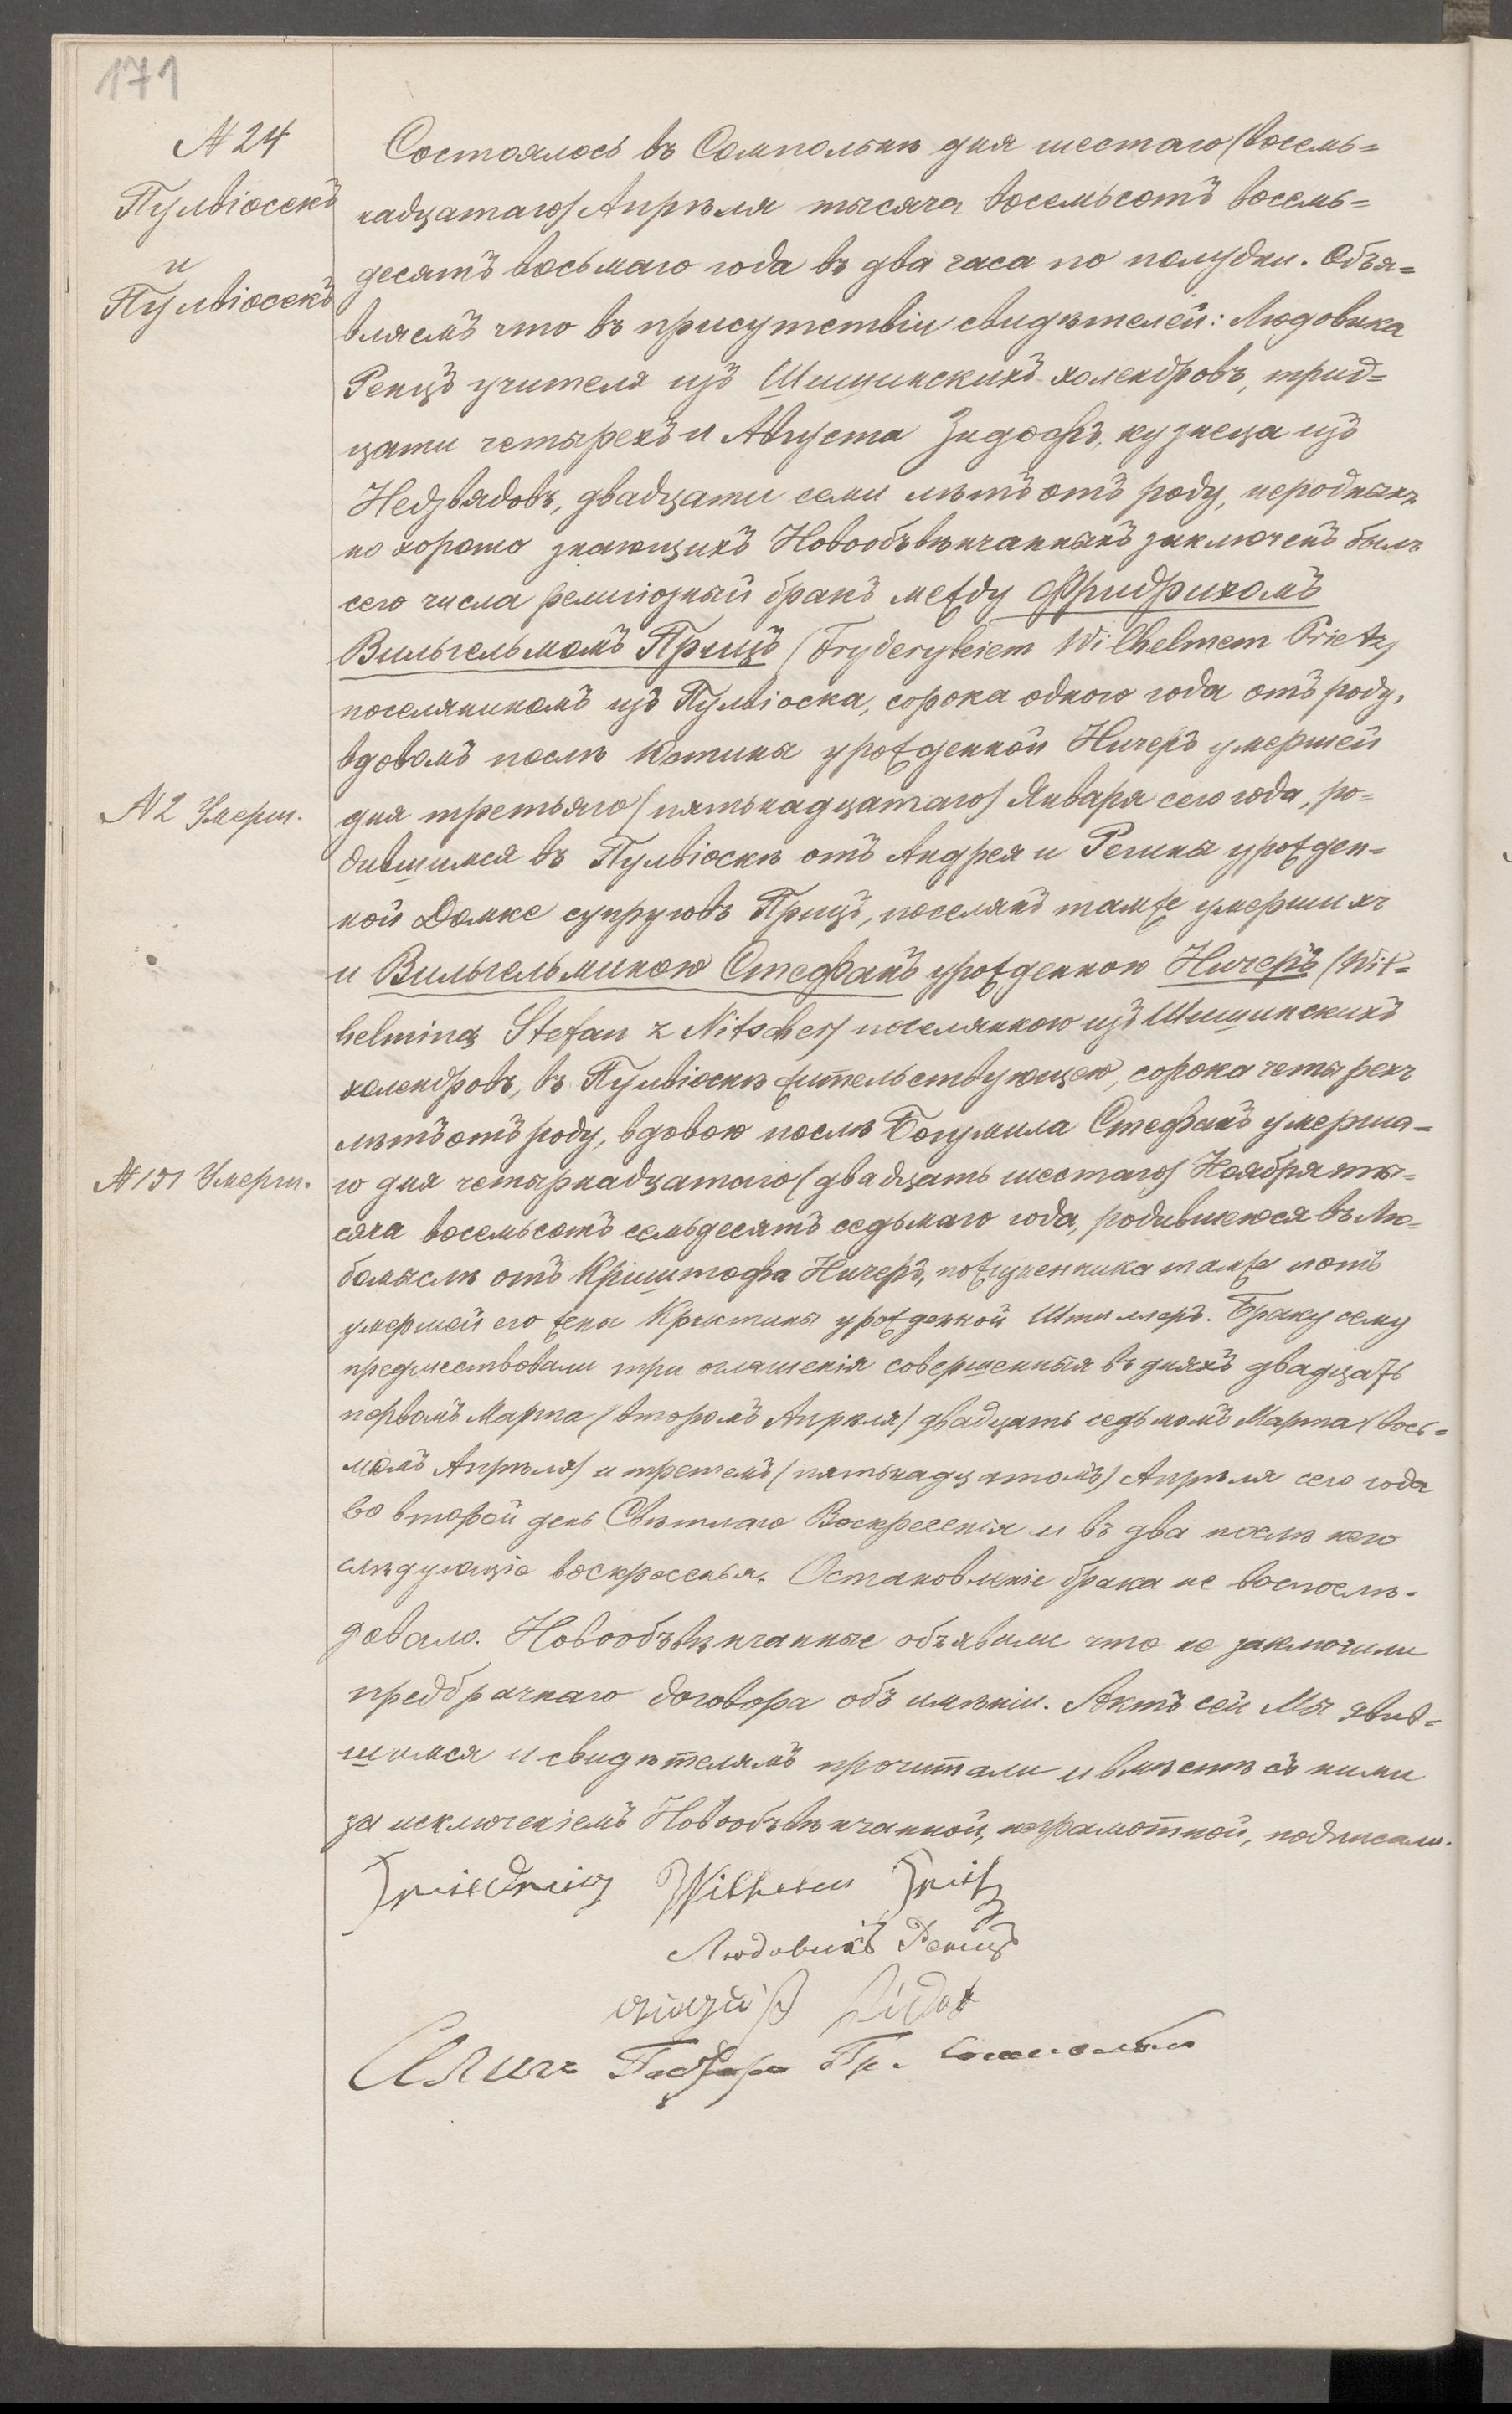 171
N 24
Пулвіосекъ
и
Пулвіосекъ
Состоялось въ Сомпольнѣ дня шестаго /восемь=
надцатаго/ Апрѣля тысяча восемьсотъ восемь=
десятъ восьмаго года въ два часа по полудни. Объя=
вляемъ что въ присутствіи свидѣтелей: Людовика
Ренцъ учителя изъ Шишинскихъ-холендровъ, трид=
цати четырехъ и Августа Зидофъ, кузнеца изъ
Недзвядовъ, двадцати семи лѣтъ отъ роду, неродныхъ
но хорошо знающихъ Новообвѣнчанныхъ заключенъ былъ
сего числа религіозный бракъ между Фридрихомъ
Вильгельмомъ Прицъ /Fryderykiem Wilhelmem Prietz/
поселяниномъ изъ Пулвіоска, сорока одного года отъ роду,
вдовомъ послѣ Юстины урожденной Ничеръ умершей
N 2 Умерш.
дня третьяго /пятьнадцатаго/ Января сего года, ро=
дившимся въ Пулвіоскѣ отъ Андрея и Регины урожден=
ной Домке супруговъ Прицъ, поселянъ тамже умершихъ
и Вильгельминою Стефанъ урожденною Ничеръ /Wil=
helminą Stefan z Nitscher/ поселянкою изъ Шишинскихъ
холендровъ, въ Пулвіоскѣ жительствующею, сорока четырехъ
лѣтъ отъ роду, вдовою послѣ Богумила Стефанъ умерша=
N 131 Умерш.
го дня четырнадцатаго /двадцать шестаго/ Ноября ты=
сяча восемьсотъ семьдесятъ седьмаго года, родившеюся въ Лю=
бомыслѣ отъ Криштофа Ничеръ, тамже и отъ
умершей его жены Крыстины урожденной Штиллеръ. Браку сему
предшествовали три оглашенія совершенныя въ дняхъ двадцать
первомъ Марта /второмъ Апрѣля/ двадцать седьмомъ Марта /вось=
момъ Апрѣля/ и третемъ /пятьнадцатомъ/ Апрѣля сего года
во второй день Свѣтлаго Воскресенія и въ два послѣ него
слѣдующіе воскресенья. Остановленіе брака не воспослѣ-
довало. Новообвѣнчанные объявили что не заключили
предбрачнаго договора объ имѣніи. Актъ сей Мы явив=
шимся и свидѣтелямъ прочитали и вмѣстѣ съ ними
за исключеніемъ Новообвѣнчанной, неграмотной, подписали.
Friedrich Wilhelm Prietz
Людовикъ Ренцъ
August Sidof